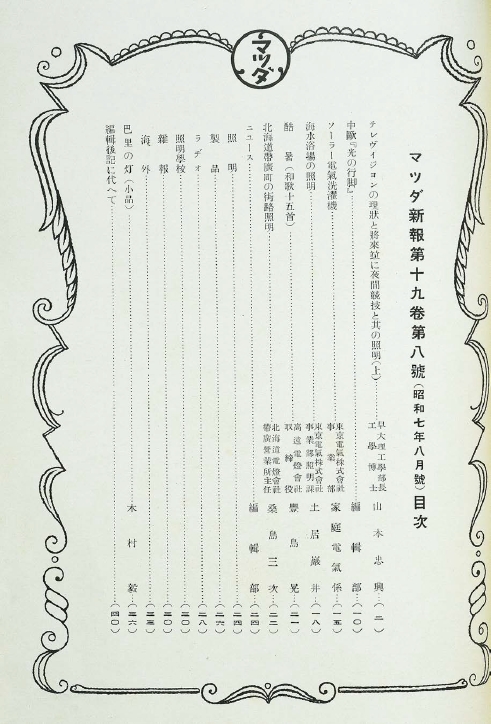 マツダ
マツダ新報第十九卷第八號(昭和七年八月號)目次
テレヴイジョンの現狀と將來竝に夜間競技と其の照明(上)……早大理工學部長 工學博士 山本忠興…(二)
中歐『光の行脚』……編輯部…(一〇)
ソーラー電氣洗濯機……東京電氣株式會社 事業部 家庭電氣係…(一五)
海水浴場の照明……東京電氣株式會社 事業部照明課 土居巖井…(一八)
酷暑(和歌十五首)……高遠電燈會社 取締役 豐島晃…(二一)
北海道帶廣町の街路照明……北海道電燈會社 帶廣營業所主任 桑島三次…(二二)
ニュース……編輯部…(二四)
照明……(二四)
製品……(二六)
ラヂオ……(二八)
照明學校……(三〇)
雜報……(三〇)
海外……(三五)
巴里の灯(小品)……木村毅…(三六)
編輯後記に代へて……(四〇)